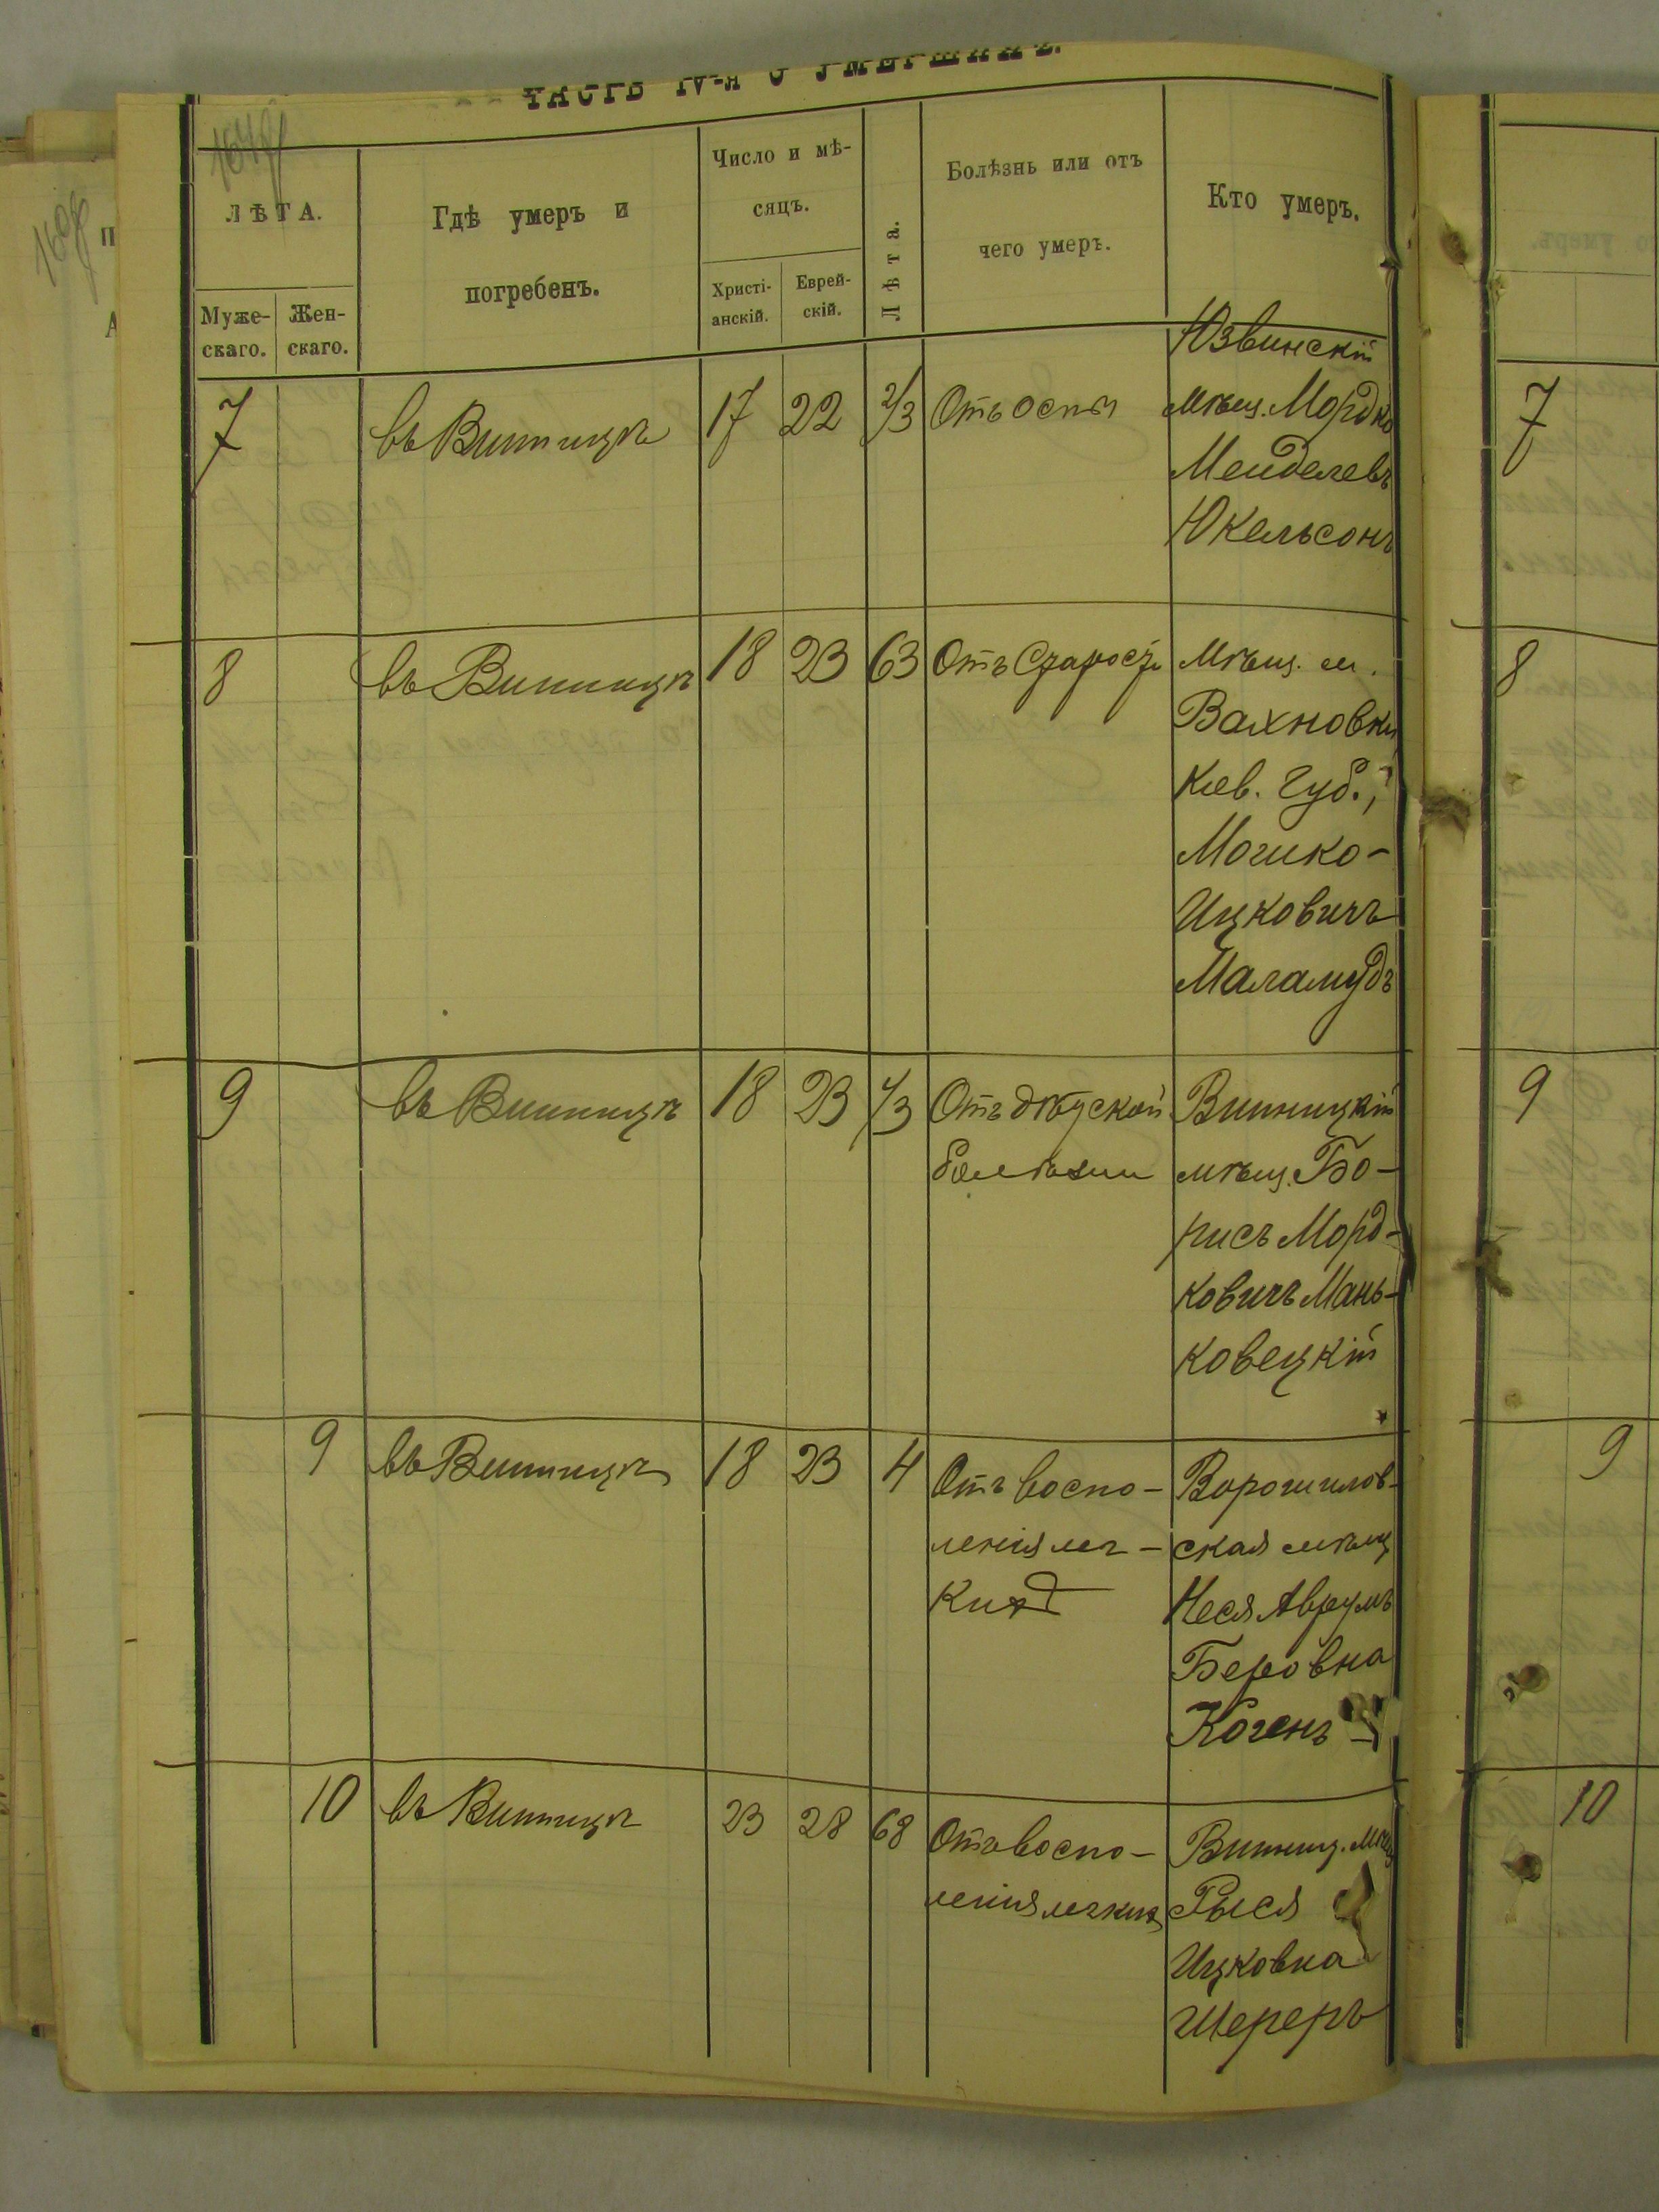 ЧАСТЬ IV-я О УМЕРШИХЪ.
ЛѢТА.
Муже-
скаго.
Жен-
скаго.
Гдѣ умеръ и
погребенъ.
Число и мѣ-
сяцъ.
Христі-
анскій.
Еврей-
скій.
Лѣта.
Болѣзнь или отъ
чего умеръ.
Кто умеръ.
7 въ Винницѣ 17 22 2/3 Отъ оспы
Юзвинскій
мѣщ. Мордко
Менделевъ
Юкельсонъ
7
8 въ Винницѣ 18 23 63 Отъ Старости
Мѣщ. м.
Вахновки
Кіев. Губ.,
Мошко-
Ицковичъ
Маламудъ
8
9 въ Винницѣ 18 23 1/3 Отъ дѣтской
болѣзни
Винницкій
мѣщ. Бо-
рисъ Морд-
ковичъ Мань-
ковецкій
9
9 въ Винницѣ 18 23 4 Отъ воспо-
ленія лег-
кихъ
Ворошилов-
ская мѣщ
Неся Аврумъ
Беровна
Когенъ
9
10 въ Винницѣ 23 28 68 Отъ воспо-
ленія легкихъ
Винниц. мѣщ
Рыся
Ицковна
Шереръ
10